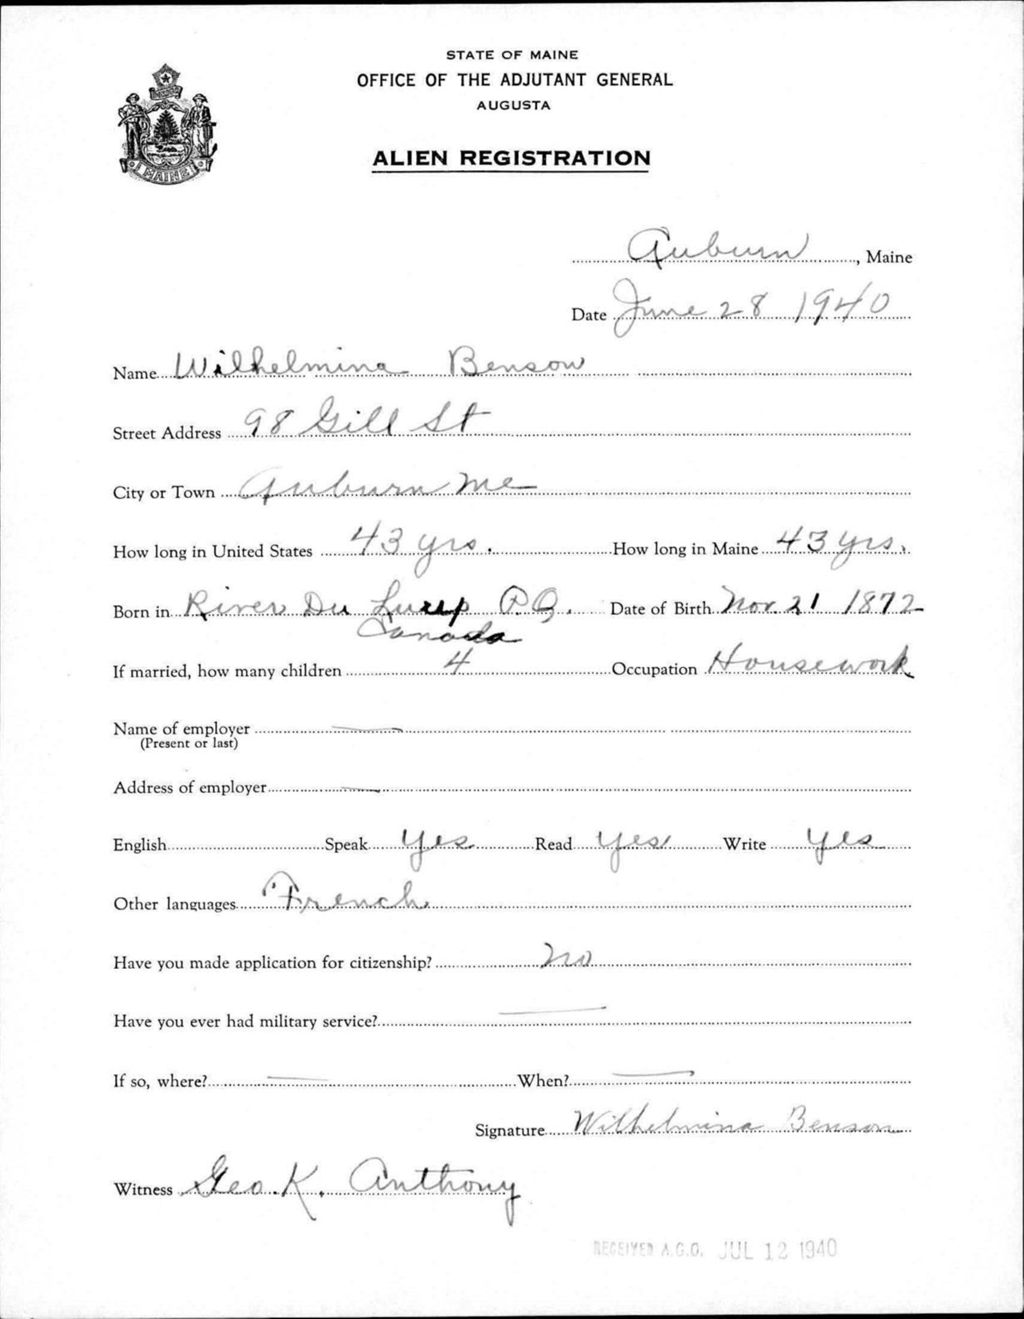 STATE OF MAINE
OFFICE OF THE ADJUTANT GENERAL
AUGUSTA
ALIEN REGISTRATION
MAINE
Auburn, Maine
Date June 28 1940
Name Wilhelmina Benson
Street Address 98 Gill St
City or Town Auburn Me
How long in United States 43 yrs. How long in Maine 43 yrs.
Born in River Du Luup P.Q. Date of Birth Nov. 21 1872
Canada
If married, how many children 4 Occupation Housework
Name of employer
(Present or last)
Address of employer
English Speak Yes Read Yes Write Yes
Other languages French
Have you made application for citizenship? No
Have you ever had military service?
If so, where? When?
Signature Wilhelmina Benson
Witness Geo. K. Anthony
RECEIVED A.G.O. JUL 12 1940